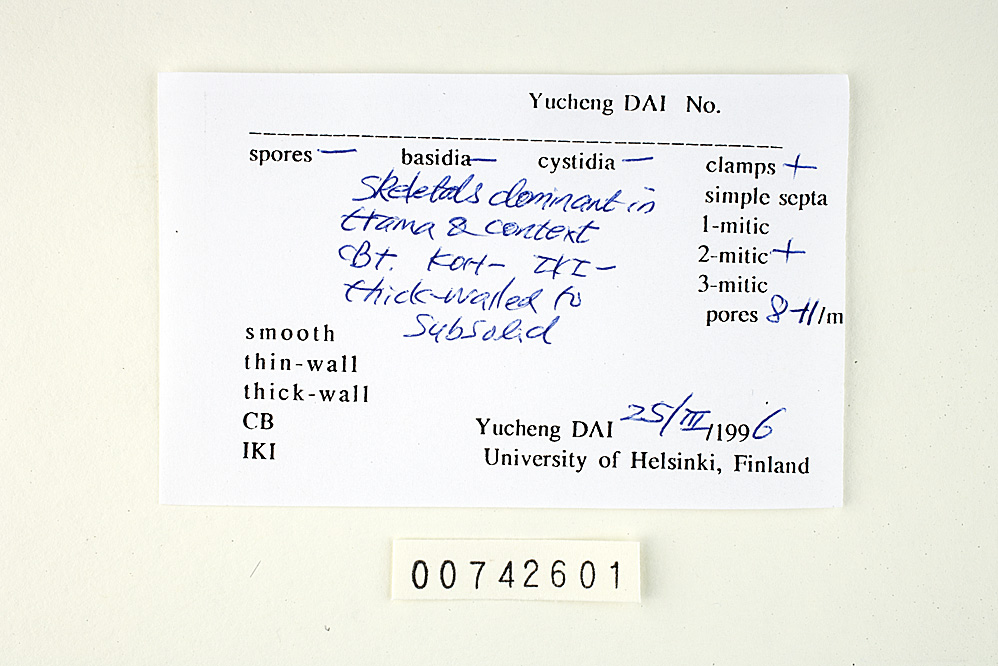 Yucheng DAI No.
spores — basidia — cystidia — clamps +
simple septa
1-mitic
2-mitic +
3-mitic
pores 8-11/m
Skeletals dominant in
trama & context
CB+. KOH- IKI-
thick-walled to
subsolid
smooth
thin-wall
thick-wall
CB
IKI
Yucheng DAI 25/III/1996
University of Helsinki, Finland
00742601